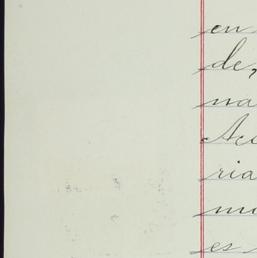 en
de,
na
Aco
ria
mo
es